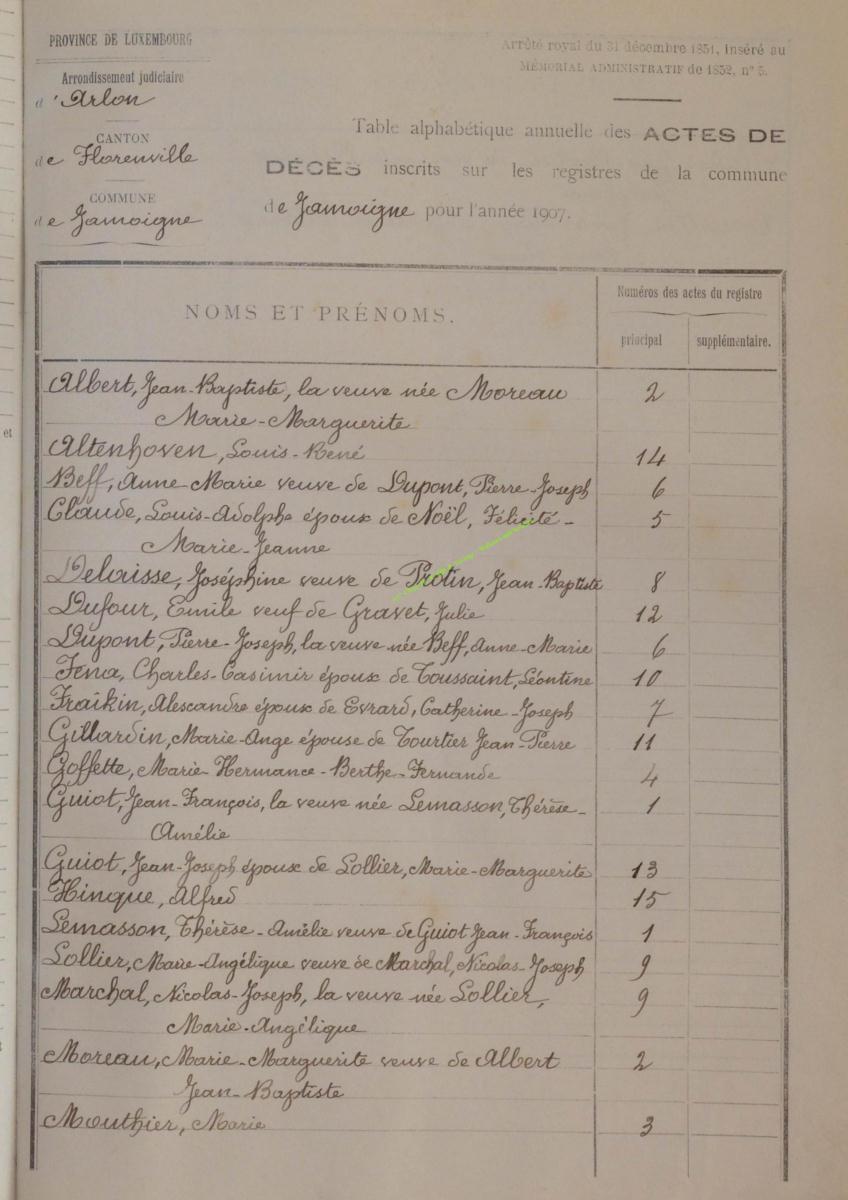 PROVINCE DE LUXEMBOURG
Arrondissement judiciaire
d'Arlon
CANTON
de Florenville
COMMUNE
de Jamoigne
Arrêté royal du 31 décembre 1851, inséré au
MÉMORIAL ADMINISTRATIF de 1852, n° 5.
Table alphabétique annuelle des ACTES DE
DÉCÈS inscrits sur les registres de la commune
de Jamoigne pour l'année 1907.
NOMS ET PRÉNOMS.
Numéros des actes du registre
principal
supplémentaire.
Albert, Jean-Baptiste, la veuve née Moreau 2
Marie-Marguerite
Altenhoven, Louis-René 14
Beff, Anne-Marie veuve de Dupont, Pierre-Joseph 6
Claude, Louis-Adolphe époux de Noël, Félicité- 5
Marie-Jeanne
Delaisse, Joséphine veuve de Protin, Jean-Baptiste 8
Dufour, Emile veuf de Gravet, Julie 12
Dupont, Pierre-Joseph, la veuve née Beff, Anne-Marie 6
Fena, Charles-Casimir époux de Toussaint, Léontine 10
Fraikin, Alexandre époux de Evrard, Catherine-Joseph 7
Gillardin, Marie-Ange épouse de Tourtier Jean-Pierre 11
Goffette, Marie-Hermance-Berthe-Fernande 4
Guiot, Jean-François, la veuve née Lemasson, Thérèse- 1
Amélie
Guiot, Jean-Joseph époux de Lollier, Marie-Marguerite 13
Hinque, Alfred 15
Lemasson, Thérèse-Amélie veuve de Guiot Jean-François 1
Lollier, Marie-Angélique veuve de Marchal, Nicolas-Joseph 9
Marchal, Nicolas-Joseph, la veuve née Lollier, 9
Marie-Angélique
Moreau, Marie-Marguerite veuve de Albert 2
Jean-Baptiste
Mouthier, Marie 3
et